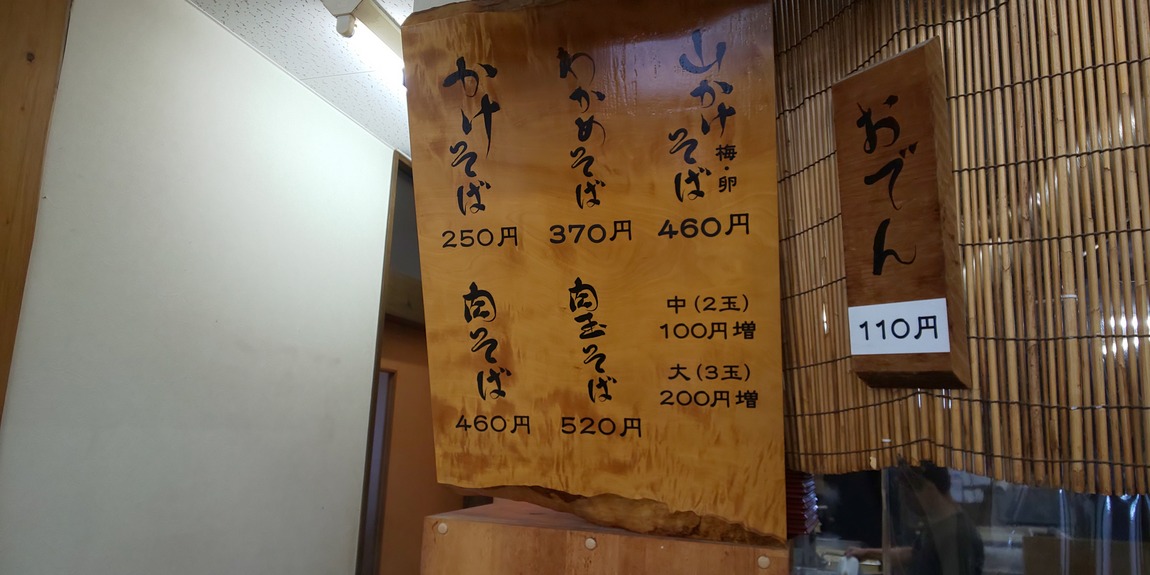 山かけそば
梅・卵
460円
わかめそば
370円
かけそば
250円
中(2玉)
100円増
大(3玉)
200円増
肉玉そば
520円
肉そば
460円
おでん
110円